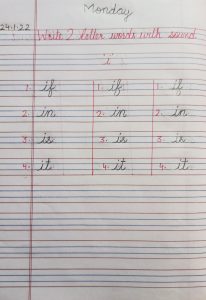 Monday
24.1.22
Write 2 letter words with sound
'i'
1. if 1. if 1. if
2. in 2. in 2. in
3. is 3. is 3. is
4. it 4. it 4. it